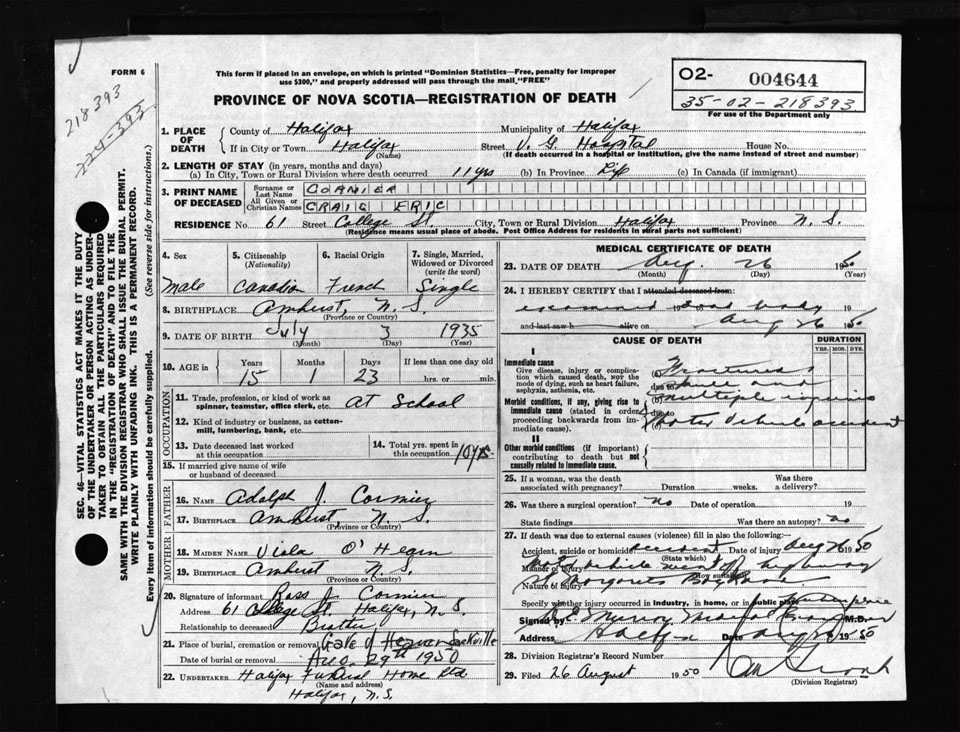 FORM 6
This form if placed in an envelope, on which is printed "Dominion Statistics—Free, penalty for improper
use $300," and properly addressed will pass through the mail, "FREE"
PROVINCE OF NOVA SCOTIA—REGISTRATION OF DEATH
O2- 004644
35-02-218393
For use of the Department only
218393
224-393
SEC. 46—VITAL STATISTICS ACT MAKES IT THE DUTY
OF THE UNDERTAKER OR PERSON ACTING AS UNDER-
TAKER TO OBTAIN ALL THE PARTICULARS REQUIRED
IN THE "REGISTRATION OF DEATH" AND TO FILE THE
SAME WITH THE DIVISION REGISTRAR WHO SHALL ISSUE THE BURIAL PERMIT.
WRITE PLAINLY WITH UNFADING INK. THIS IS A PERMANENT RECORD.
Every item of information should be carefully supplied. (See reverse side for instructions.)
1. PLACE OF DEATH
County of Halifax Municipality of Halifax
If in City or Town Halifax Street V. G. Hospital House No.
(Name) (If death occurred in a hospital or institution, give the name instead of street and number)
2. LENGTH OF STAY (in years, months and days)
(a) In City, Town or Rural Division where death occurred 11 yrs (b) In Province Life (c) In Canada (if immigrant)
3. PRINT NAME OF DECEASED
Surname or Last Name CORMIER
All Given or Christian Names CRAIG ERIC
RESIDENCE No. 61 Street College St. City, Town or Rural Division Halifax Province N. S.
(Residence means usual place of abode. Post Office Address for residents in rural parts not sufficient)
4. Sex 5. Citizenship (Nationality) 6. Racial Origin 7. Single, Married, Widowed or Divorced (write the word)
Male Canadian French Single
8. BIRTHPLACE Amherst, N. S.
(Province or Country)
9. DATE OF BIRTH July 3 1935
(Month) (Day) (Year)
10. AGE in Years Months Days If less than one day old
15 1 23 hrs. or min.
OCCUPATION
11. Trade, profession, or kind of work as
spinner, teamster, office clerk, etc. At School
12. Kind of industry or business, as cotton-
mill, lumbering, bank, etc.
13. Date deceased last worked
at this occupation
14. Total yrs. spent in
this occupation 10 yrs.
15. If married give name of wife
or husband of deceased
FATHER
16. NAME Adolph J. Cormier
17. BIRTHPLACE Amherst, N. S.
(Province or Country)
MOTHER
18. MAIDEN NAME Viola O'Hearn
19. BIRTHPLACE Amherst N. S.
(Province or Country)
20. Signature of informant Ross J. Cormier
Address 61 College St. Halifax, N. S.
Relationship to deceased Brother
21. Place of burial, cremation or removal Gate of Heaven Sackville
Date of burial or removal Aug. 29th 1950
22. UNDERTAKER Halifax Funeral Home Ltd
(Name and address)
Halifax, N. S.
MEDICAL CERTIFICATE OF DEATH
23. DATE OF DEATH Aug. 26 1950
(Month) (Day) (Year)
24. I HEREBY CERTIFY that I attended deceased from:
examined dead body 19
and last saw h alive on Aug 26 1950
CAUSE OF DEATH
DURATION
YRS. MOS. DYS.
I
Immediate cause
Give disease, injury or complica-
tion which caused death, NOT the
mode of dying, such as heart failure,
asphyxia, asthenia, etc.
Fractures
due to and
multiple injuries
Morbid conditions, if any, giving rise to
immediate cause (stated in order
proceeding backwards from im-
mediate cause).
due to
Motor vehicle accident
II
Other morbid conditions (if important)
contributing to death but not
causally related to immediate cause.
25. If a woman, was the death
associated with pregnancy? Duration weeks. Was there
a delivery?
26. Was there a surgical operation? no Date of operation 19
State findings Was there an autopsy? no
27. If death was due to external causes (violence) fill in also the following:—
Accident, suicide or homicide accident Date of injury Aug 26 1950
(State which)
Manner of injury Motor vehicle went off highway
(How sustained)
Nature of injury St. Margarets Bay Road
Specify whether injury occurred in industry, in home, or in public place public place
Signed by Medical Examiner M.D.
Address Halifax Date Aug 1950
28. Division Registrar's Record Number
29. Filed 26 August 1950
(Division Registrar)